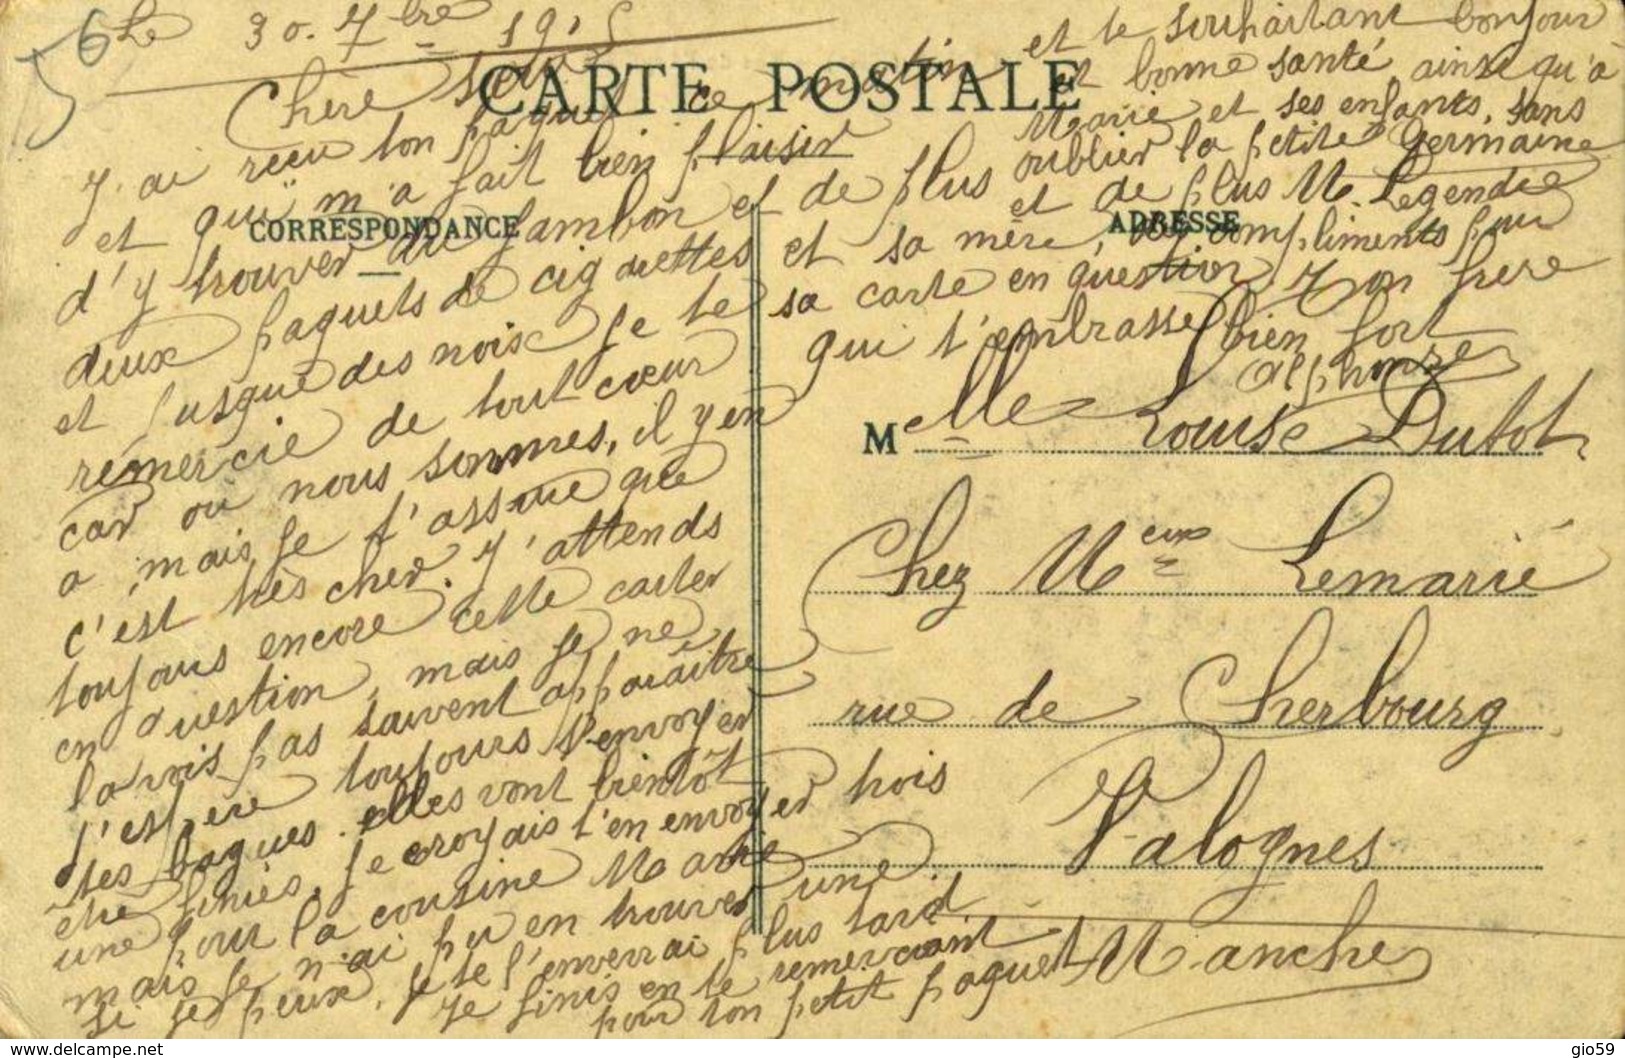 56
Le 30. 7bre 1915
CARTE POSTALE
CORRESPONDANCE
Chère sœur
J'ai reçu ton paquet ce matin
et qui m'a fait bien plaisir
d'y trouver du jambon et de plus
deux paquets de cigarettes
et jusque des noix je te
remercie de tout cœur
car où nous sommes, il y en
a, mais je t'assure que
c'est très cher. J'attends
toujours encore cette carte
en question, mais je ne
la vois pas souvent apparaître
J'espère toujours t'envoyer
tes bagues. elles vont bientôt
être finies, je croyais t'en envoyer trois
une pour la cousine Marie
mais je n'ai pu en trouver une.
Si je peux, je te l'enverrai plus tard
Je finis en te remerciant
pour ton petit paquet
et te souhaitant bonjour
et bonne santé, ainsi qu'à
Marie et ses enfants, sans
oublier la petite Germaine
et de plus M. Legendre
et sa mère, compliments pour
sa carte en question. Ton frère
qui t'embrasse bien fort
Alphonse
ADRESSE
Melle Louise Dutot
Chez Meux Lemarié
rue de Cherbourg
Valognes
Manche
www.delcampe.net
gio59